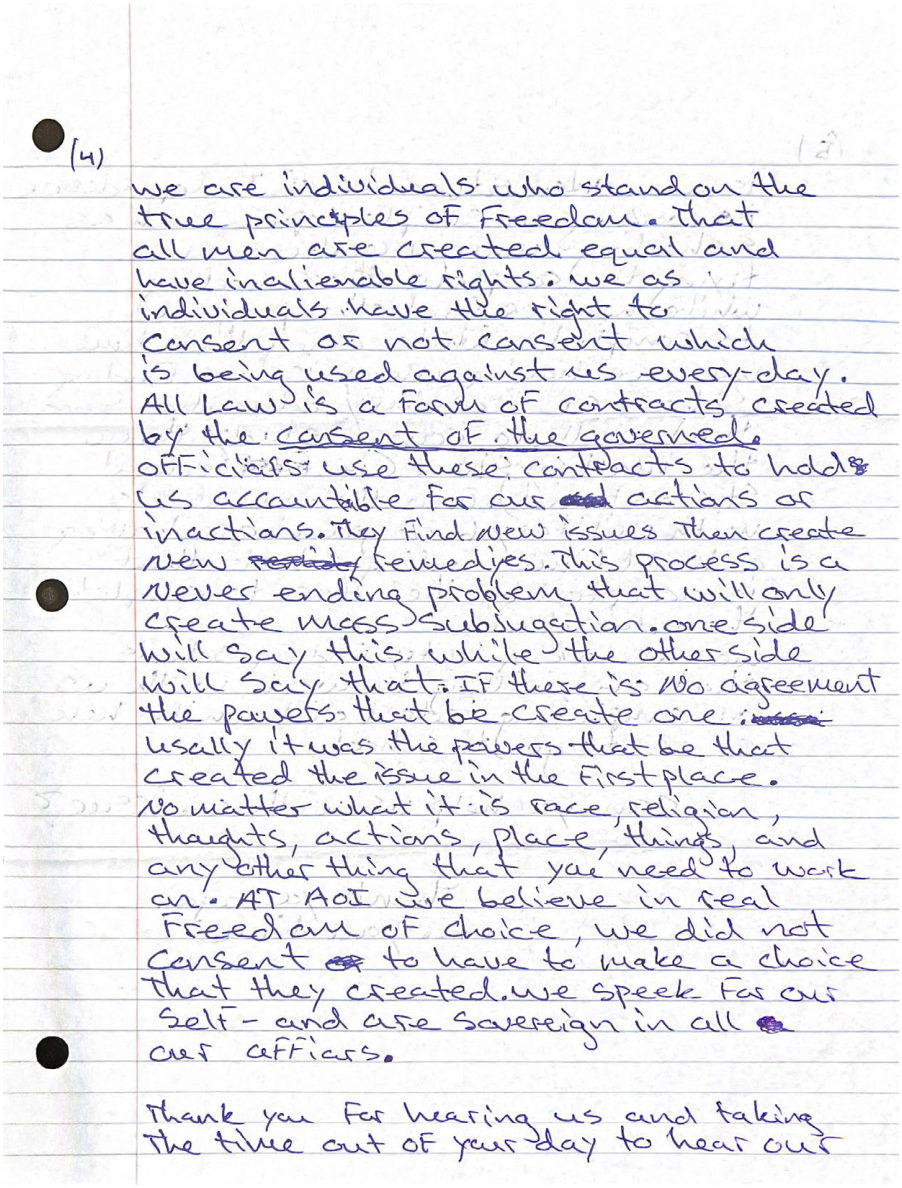 (4)
we are individuals who stand on the
true principles of Freedom. That
all men are created equal and
have inalienable rights. we as
individuals have the right to
consent or not consent which
is being used against us every-day.
All Law is a Form of contracts created
by the consent of the governed.
officials use these contracts to hold
us accountible for our actions or
inactions. They Find New issues Then create
New remedyes. This process is a
Never ending problem that will only
create mass subjugation. one side
will say this while the other side
will say that. IF there is No agreement
the powers that be create one
usally it was the powers that be that
created the issue in the First place.
No matter what it is race, religion,
thoughts, actions, place, things, and
any other thing that you need to work
on. AT AOI we believe in real
Freedom of choice, we did not
consent to have to make a choice
That they created. we speek For our
self - and are sovereign in all
our affiars.
Thank you For hearing us and taking
The time out of your day to hear our